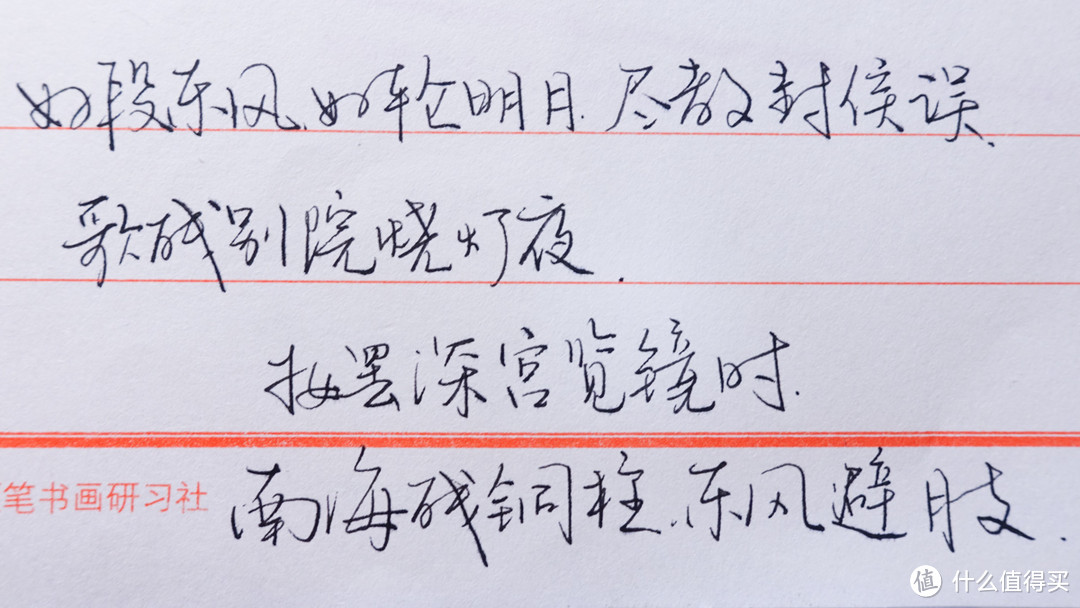 好段东风、好轮明月、尽教封侯误、
歌残别院烧灯夜.
妆罢深宫览镜时.
南海残铜柱、东风避月支.
笔书画研习社
值 什么值得买